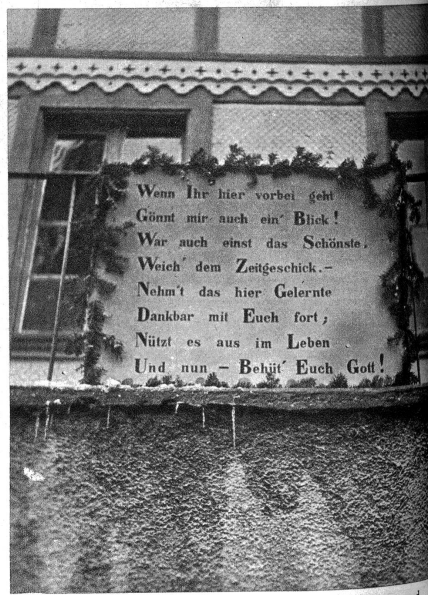 Wenn Ihr hier vorbei geht
Gönnt mir auch ein' Blick!
War auch einst das Schönste.
Weich' dem Zeitgeschick.–
Nehm't das hier Gelernte
Dankbar mit Euch fort;
Nützt es aus im Leben
Und nun – Behüt' Euch Gott!